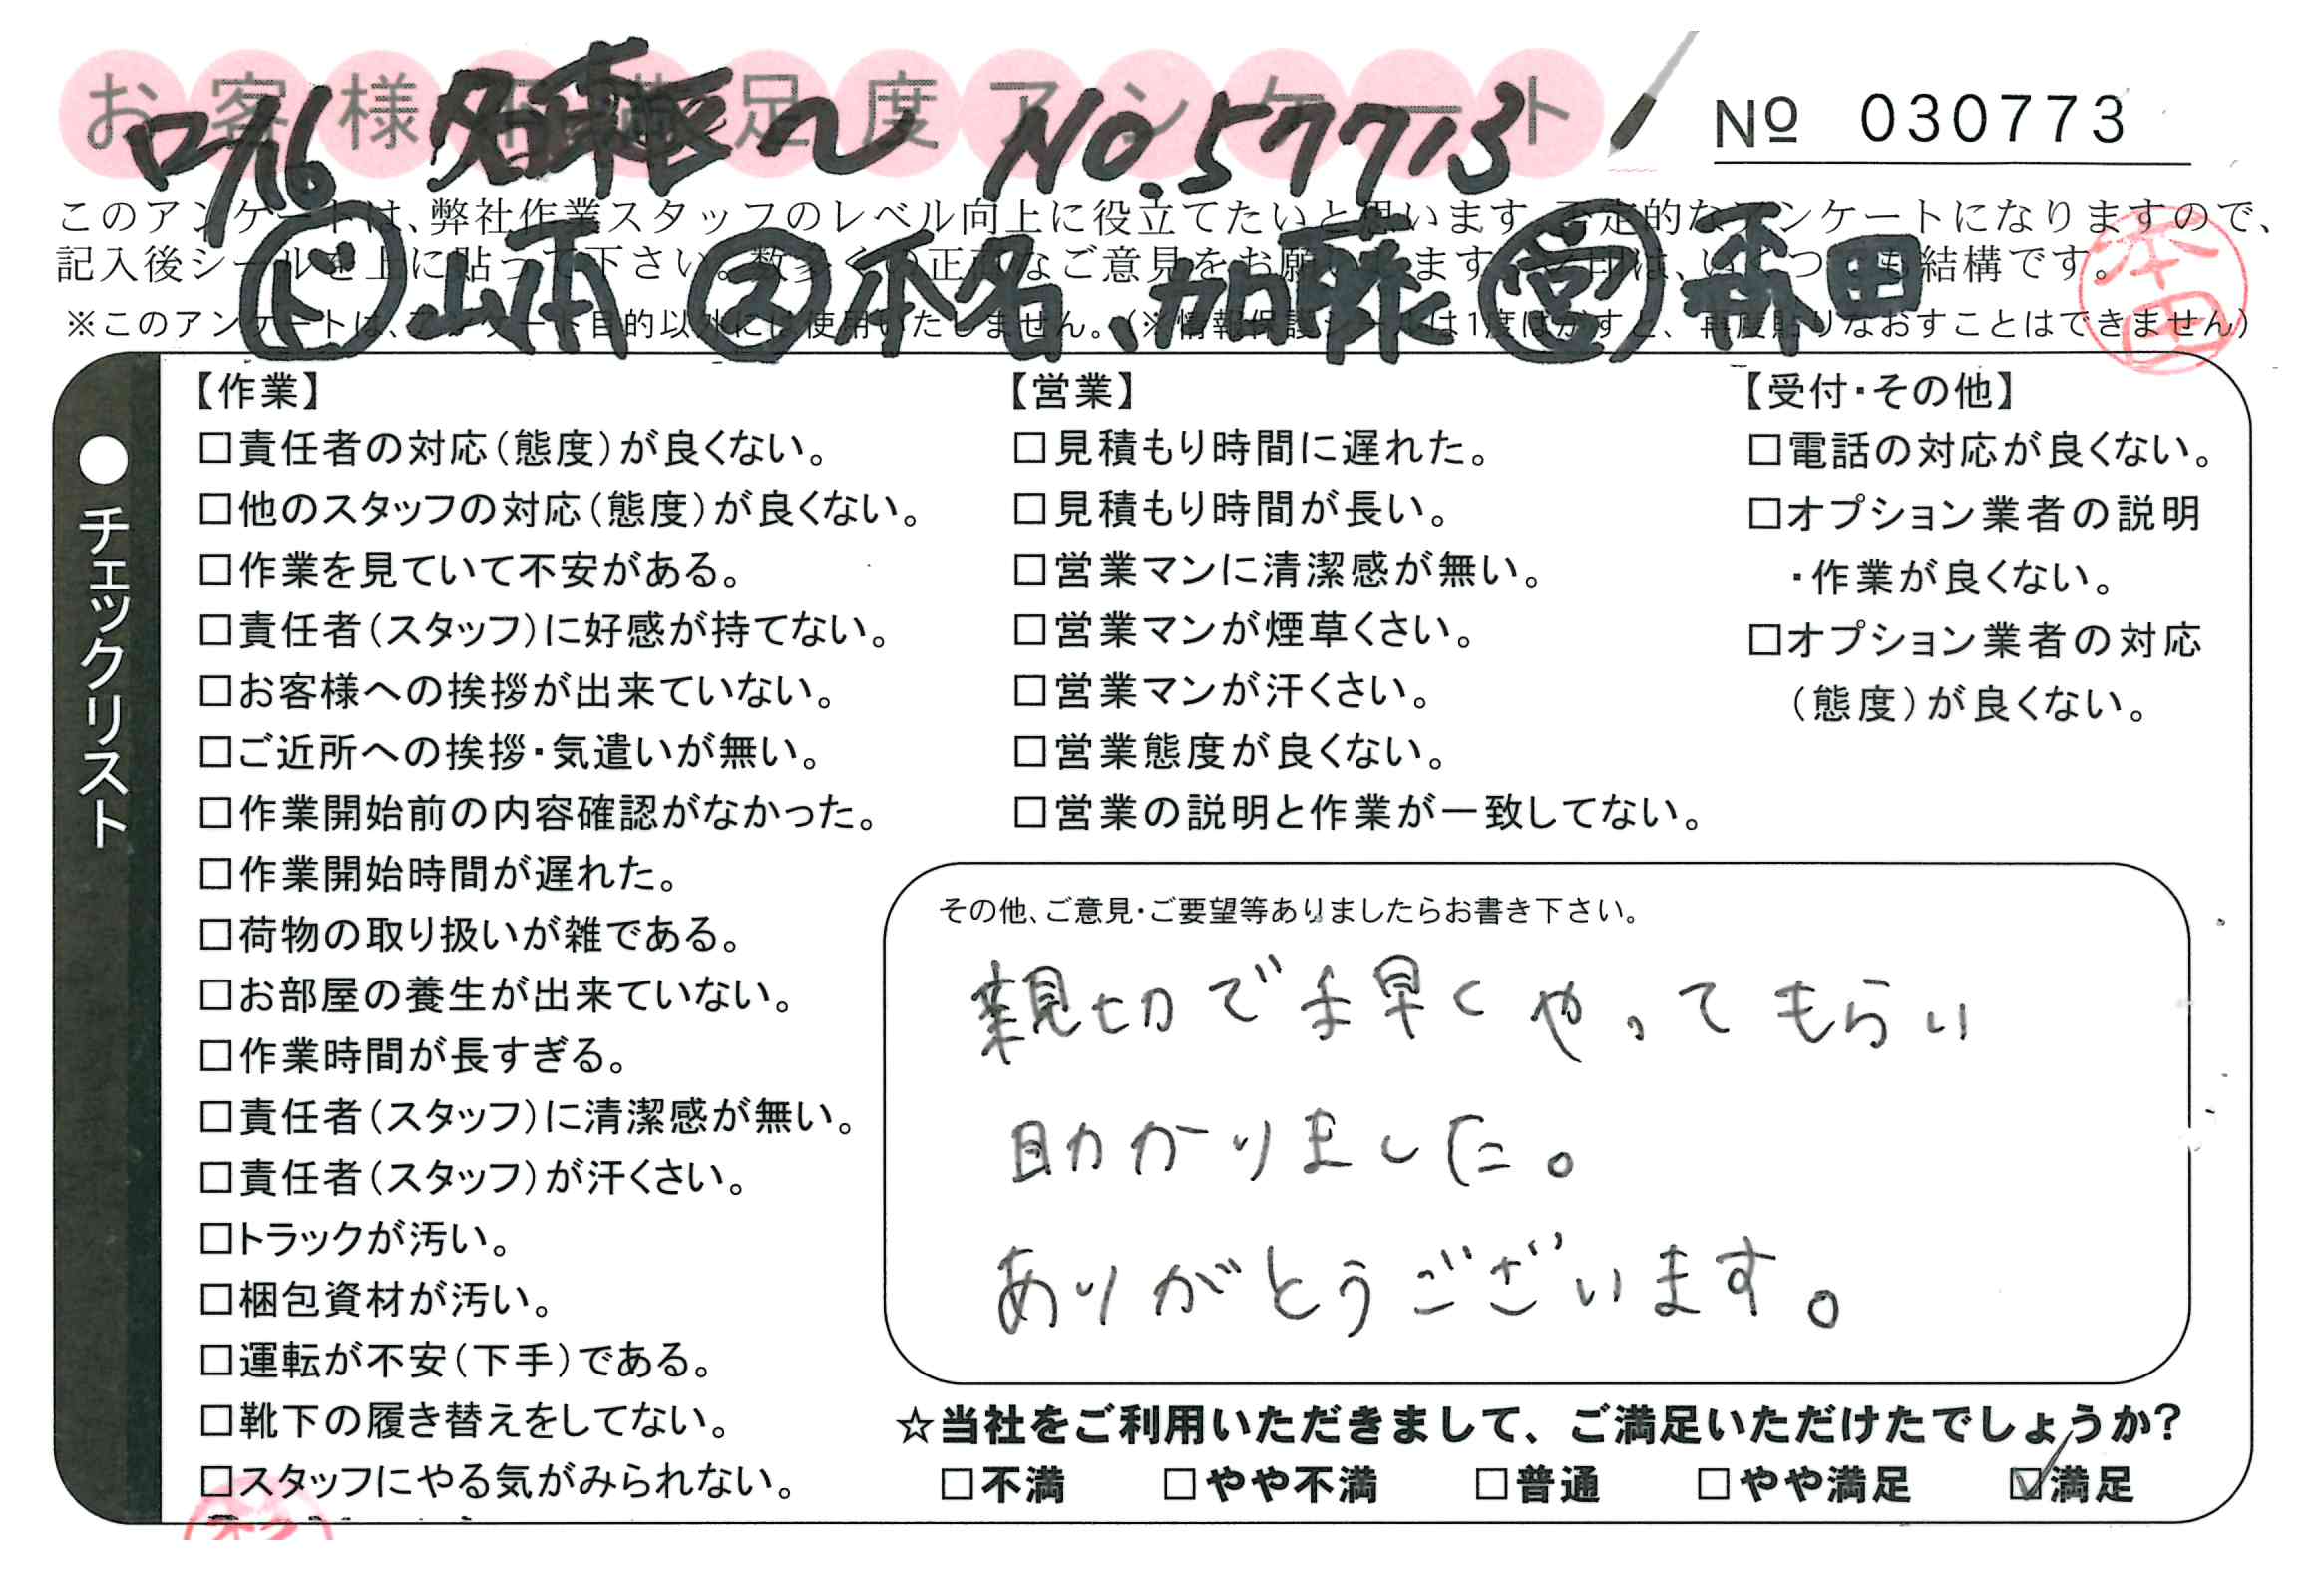 お客様不満足度アンケート
No 030773
No.57713
このアンケートは、弊社作業スタッフのレベル向上に役立てたいと思います
アンケートになりますので、
記入後シールを上に貼って下さい。数多くの正直なご意見をお願いします
結構です。
※このアンケートは、アンケート目的以外には使用いたしません。(※情報保護シールは1度はがすと、再度貼りなおすことはできません)
㋣山本 ㋜本名、加藤 ㊂
本田
●チェックリスト
【作業】
□責任者の対応(態度)が良くない。
□他のスタッフの対応(態度)が良くない。
□作業を見ていて不安がある。
□責任者(スタッフ)に好感が持てない。
□お客様への挨拶が出来ていない。
□ご近所への挨拶・気遣いが無い。
□作業開始前の内容確認がなかった。
□作業開始時間が遅れた。
□荷物の取り扱いが雑である。
□お部屋の養生が出来ていない。
□作業時間が長すぎる。
□責任者(スタッフ)に清潔感が無い。
□責任者(スタッフ)が汗くさい。
□トラックが汚い。
□梱包資材が汚い。
□運転が不安(下手)である。
□靴下の履き替えをしてない。
□スタッフにやる気がみられない。
【営業】
□見積もり時間に遅れた。
□見積もり時間が長い。
□営業マンに清潔感が無い。
□営業マンが煙草くさい。
□営業マンが汗くさい。
□営業態度が良くない。
□営業の説明と作業が一致してない。
【受付・その他】
□電話の対応が良くない。
□オプション業者の説明
・作業が良くない。
□オプション業者の対応
(態度)が良くない。
その他、ご意見・ご要望等ありましたらお書き下さい。
親切で手早くやってもらい
助かりました。
ありがとうございます。
☆当社をご利用いただきまして、ご満足いただけたでしょうか?
□不満 □やや不満 □普通 □やや満足 ☑満足